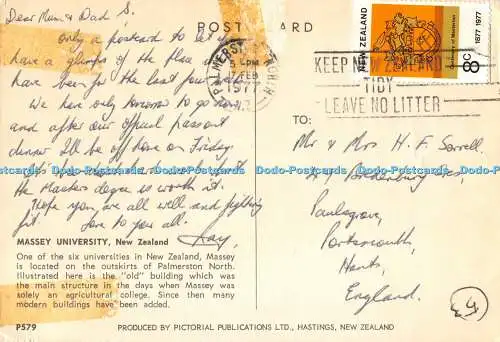 Dear Mum & Dad S.
POST CARD
only a postcard to let
have a glimpse of the place
have been for the last few
We have only tomorrow to go now
and after our official passout
dinner I'll be off home on Friday
the Masters degree is worth it.
Hope you are all well and fighting
fit. Love to you all.
MASSEY UNIVERSITY, New Zealand
One of the six universities in New Zealand, Massey
is located on the outskirts of Palmerston North.
Illustrated here is the "old" building which was
the main structure in the days when Massey was
solely an agricultural college. Since then many
modern buildings have been added.
P579
PRODUCED BY PICTORIAL PUBLICATIONS LTD., HASTINGS, NEW ZEALAND
PALMERSTON NORTH
5 PM
FEB
1977
N.Z.
KEEP NEW ZEALAND
TIDY
LEAVE NO LITTER
NEW ZEALAND
1877 1977
8c
TO:
Mr & Mrs H. F. Sorrell
Paulsgrove,
Portsmouth,
Hants,
England.
Dodo-Postcards Dodo-Postcards Dodo-Postcards Dodo-Postcards Dodo-Postcards